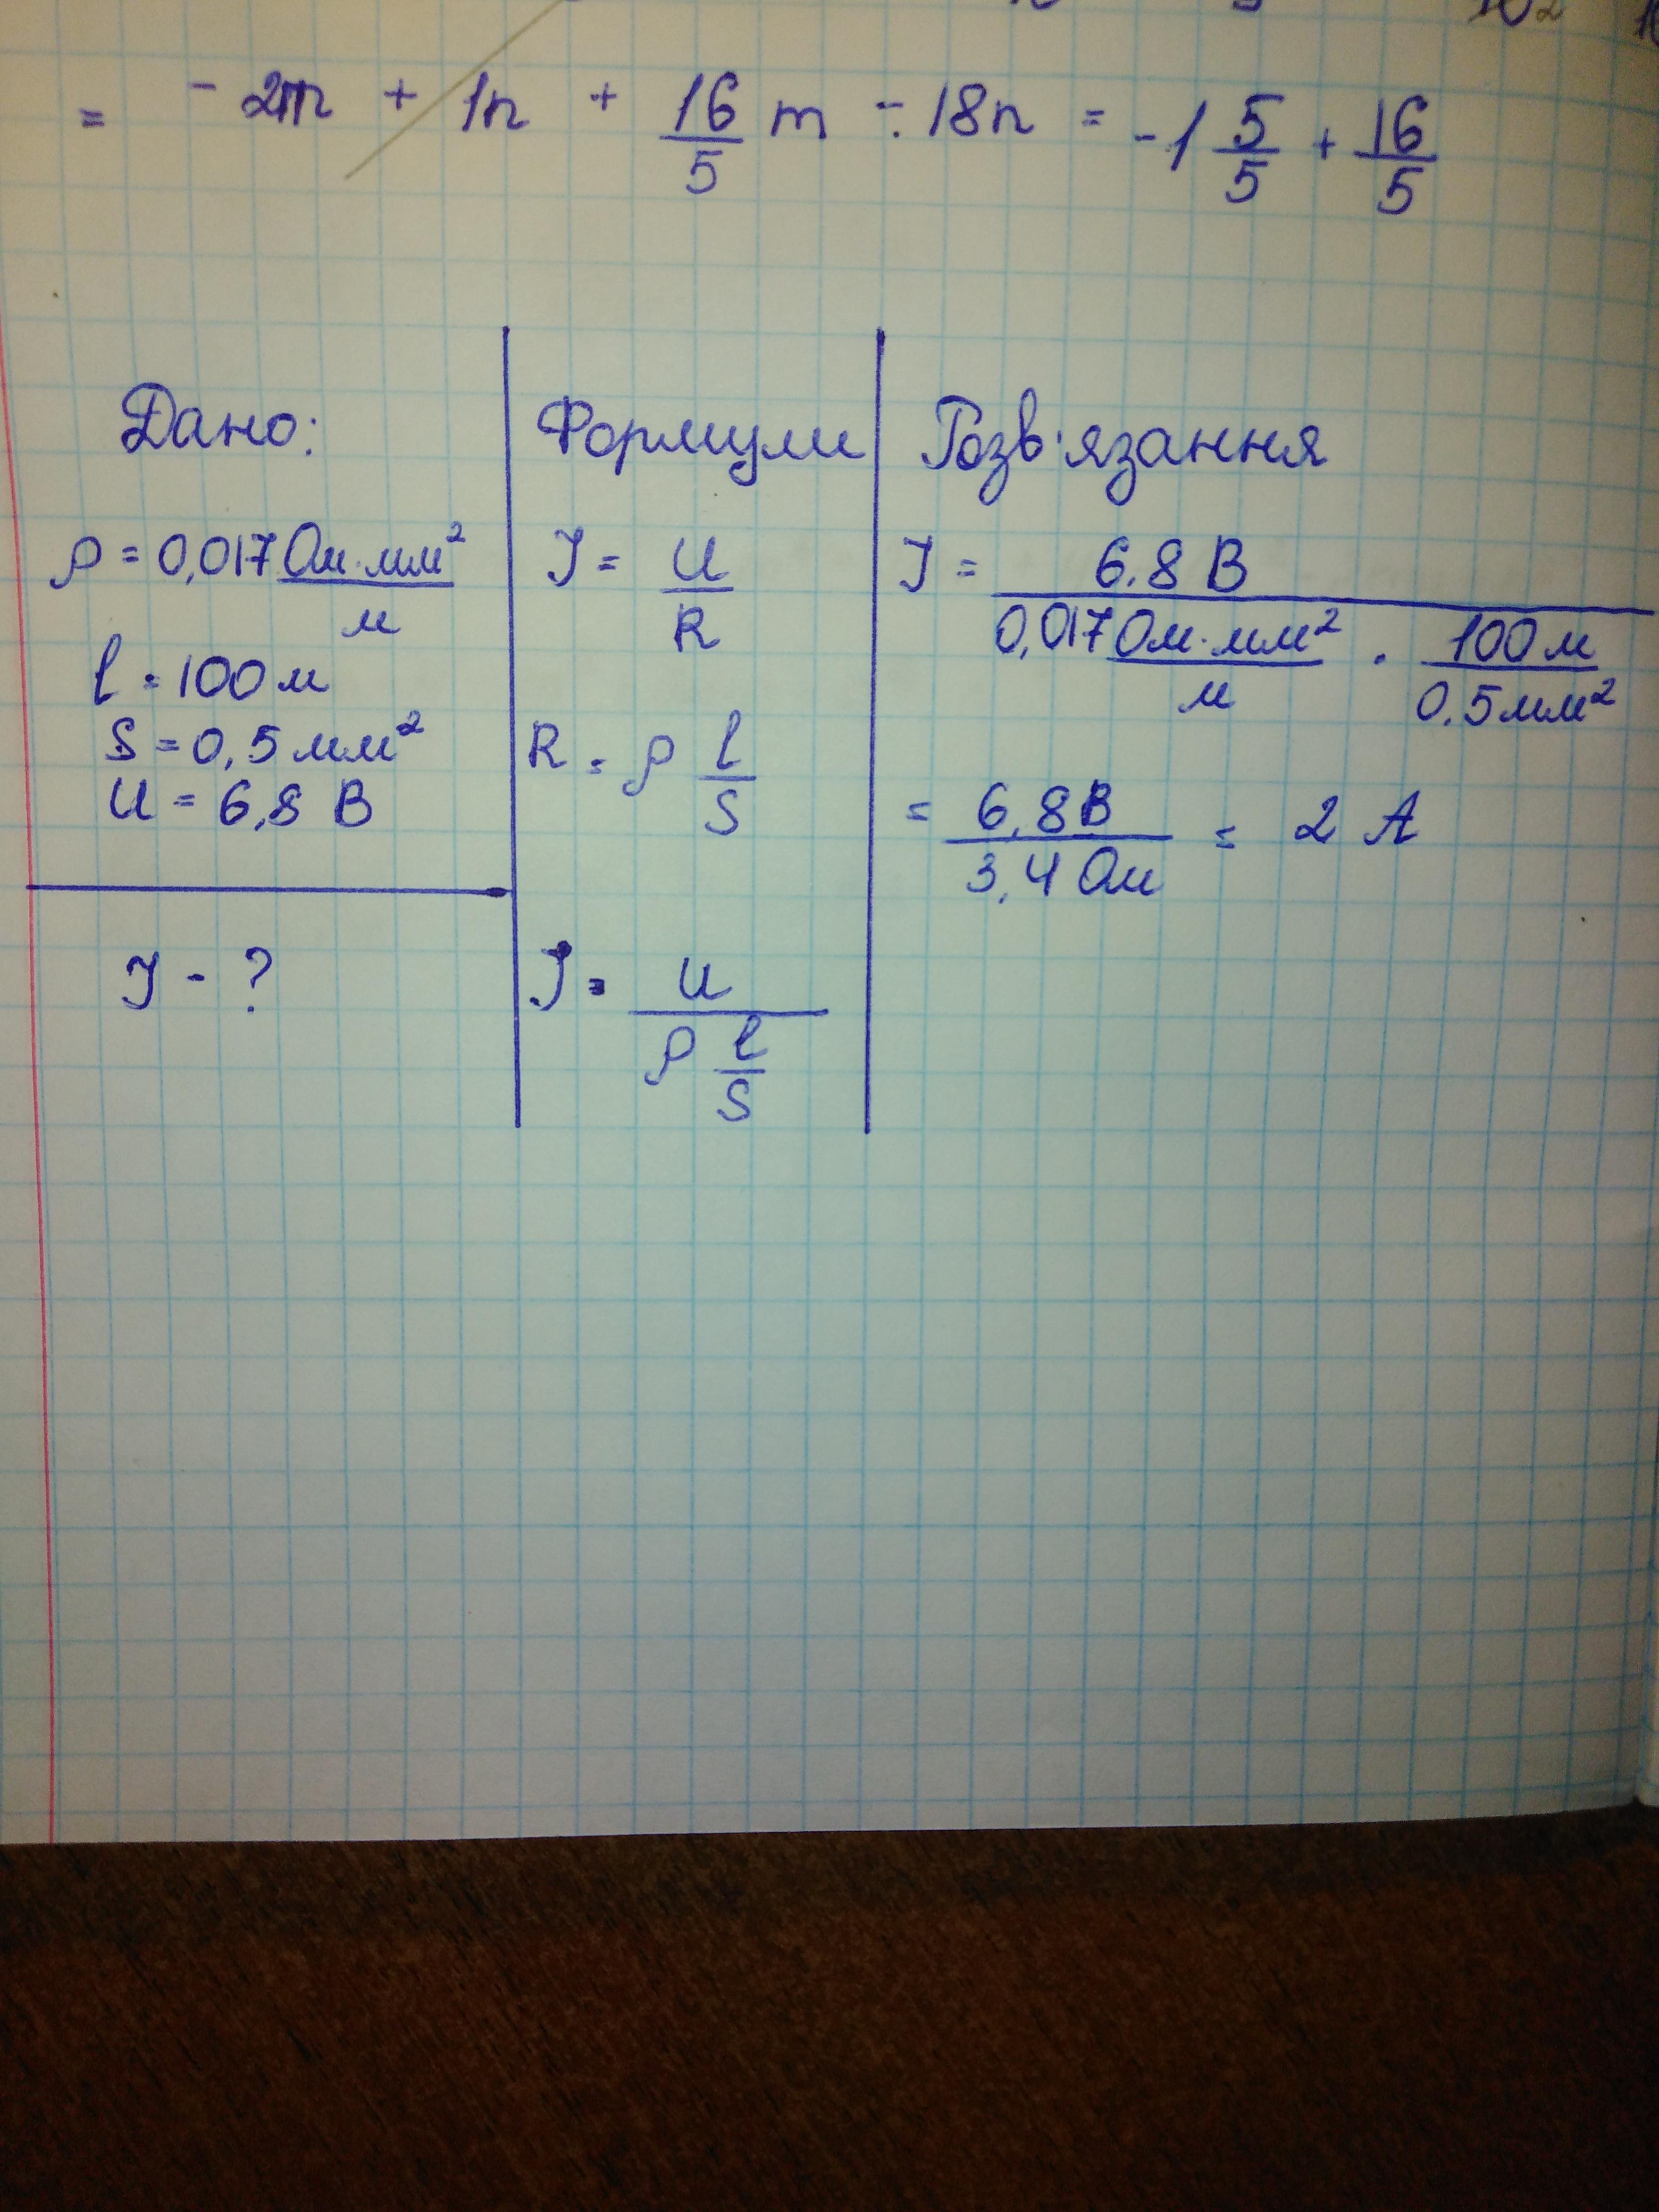 = - 2m + 1n + 16/5 m - 18n = -1 5/5 + 16/5
Дано:
ρ = 0,017 Ом·мм²/м
l = 100 м
S = 0,5 мм²
U = 6,8 В
I - ?
Формули
I = U/R
R = ρ l/S
I = U/(ρ l/S)
Розв'язання
I = 6.8 В/(0,017 Ом·мм²/м · 100 м/0.5 мм²)
= 6,8 В/3,4 Ом = 2 А